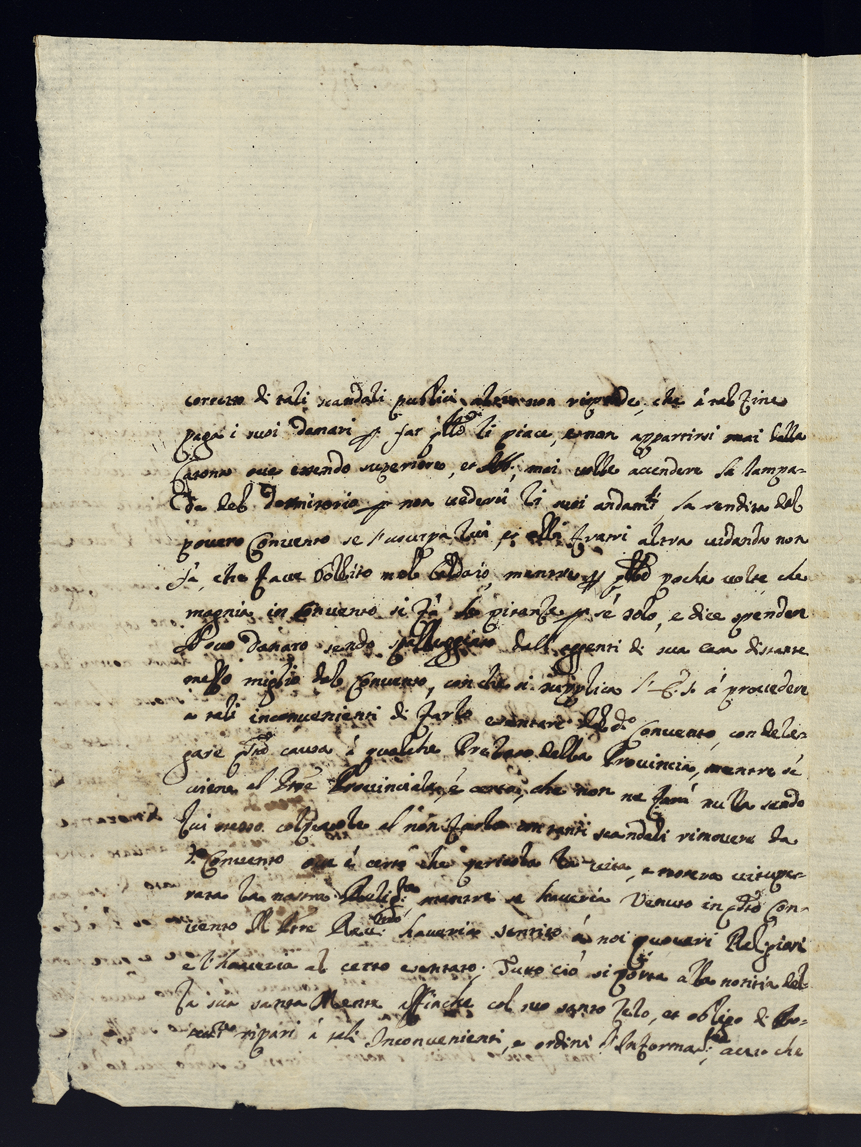 corretto di tali scandali publici, altri non riprende, che à tal fine
paga i suoi danari p far q.llo li piace, e non appartirsi mai dalla
Catona ove essendo superiore, et mai volle accendere la lampa-
da del dormitorio p non vedersi li suoi andam.ti, la rendita del
povero Convento se l'usurpa lui, et alli frati altra vidanda non
fà, che fave bollito nel Caldaio, mentre p q.llo poche volte, che
magnia in Convento si fà le pietanze p sé solo, e dice spendere
Poco danaro sendo spalleggiato dall'agenti di sua casa distante
mezzo miglio dal Convento, con che si supplica à provedere
a tali inconvenienti di farlo esentare dal d.o Convento, con dele-
gare q.sta causa à qualche Prelato della Provincia, mentre se
viene al Pre Provinciale, è certo, che non ne farà nulla sendo
lui stesso colpevole al non farlo con tanti scandali rimovere da
d.o Convento ove è certo che perderà la vita, e resterà vituper-
rata la nostra Relig.ne, mentre se haveria venuto in q.sto Con-
vento il Pre Rev.mo haveria sentito à noi poveri Religiosi
e l'haveria al certo esentato; Tutto ciò si porta alla notitia del-
la sua santa Mente affinche col suo santo Zelo, et obligo di
ripari à tali Inconvenienti, e ordini l'Informa.ne, acciò che